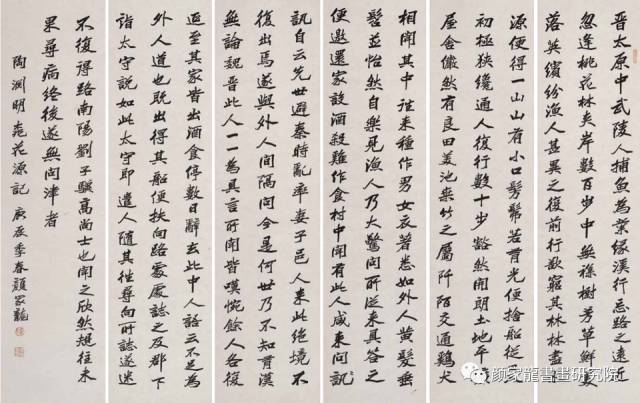 晉太原中武陵人捕魚為業緣溪行忘路之遠近
忽逢桃花林夾岸數百步中無雜樹芳草鮮美
落英繽紛漁人甚異之復前行欲窮其林林盡水
源便得一山山有小口髣髴若有光便捨船從口
初極狹纔通人復行數十步豁然開朗土地平曠
屋舍儼然有良田美池桑竹之屬阡陌交通鷄犬
相聞其中往來種作男女衣著悉如外人黃髮垂
髫並怡然自樂見漁人乃大驚問所從來具答之
便邀還家設酒殺雞作食村中聞有此人咸來問訊
訊自云先世避秦時亂率妻子邑人來此絕境不
復出焉遂與外人間隔問今是何世乃不知有漢
無論魏晉此人一一為具言所聞皆嘆惋餘人各復
延至其家皆出酒食停數日辭去此中人語云不足為
外人道也既出得其船便扶向路處處誌之及郡下
詣太守說如此太守即遣人隨其往尋向所誌遂迷
不復得路南陽劉子驥高尚士也聞之欣然規往未
果尋病終後遂無問津者
陶淵明桃花源記 庚辰季春顏家龍
颜家龍書畫研究院